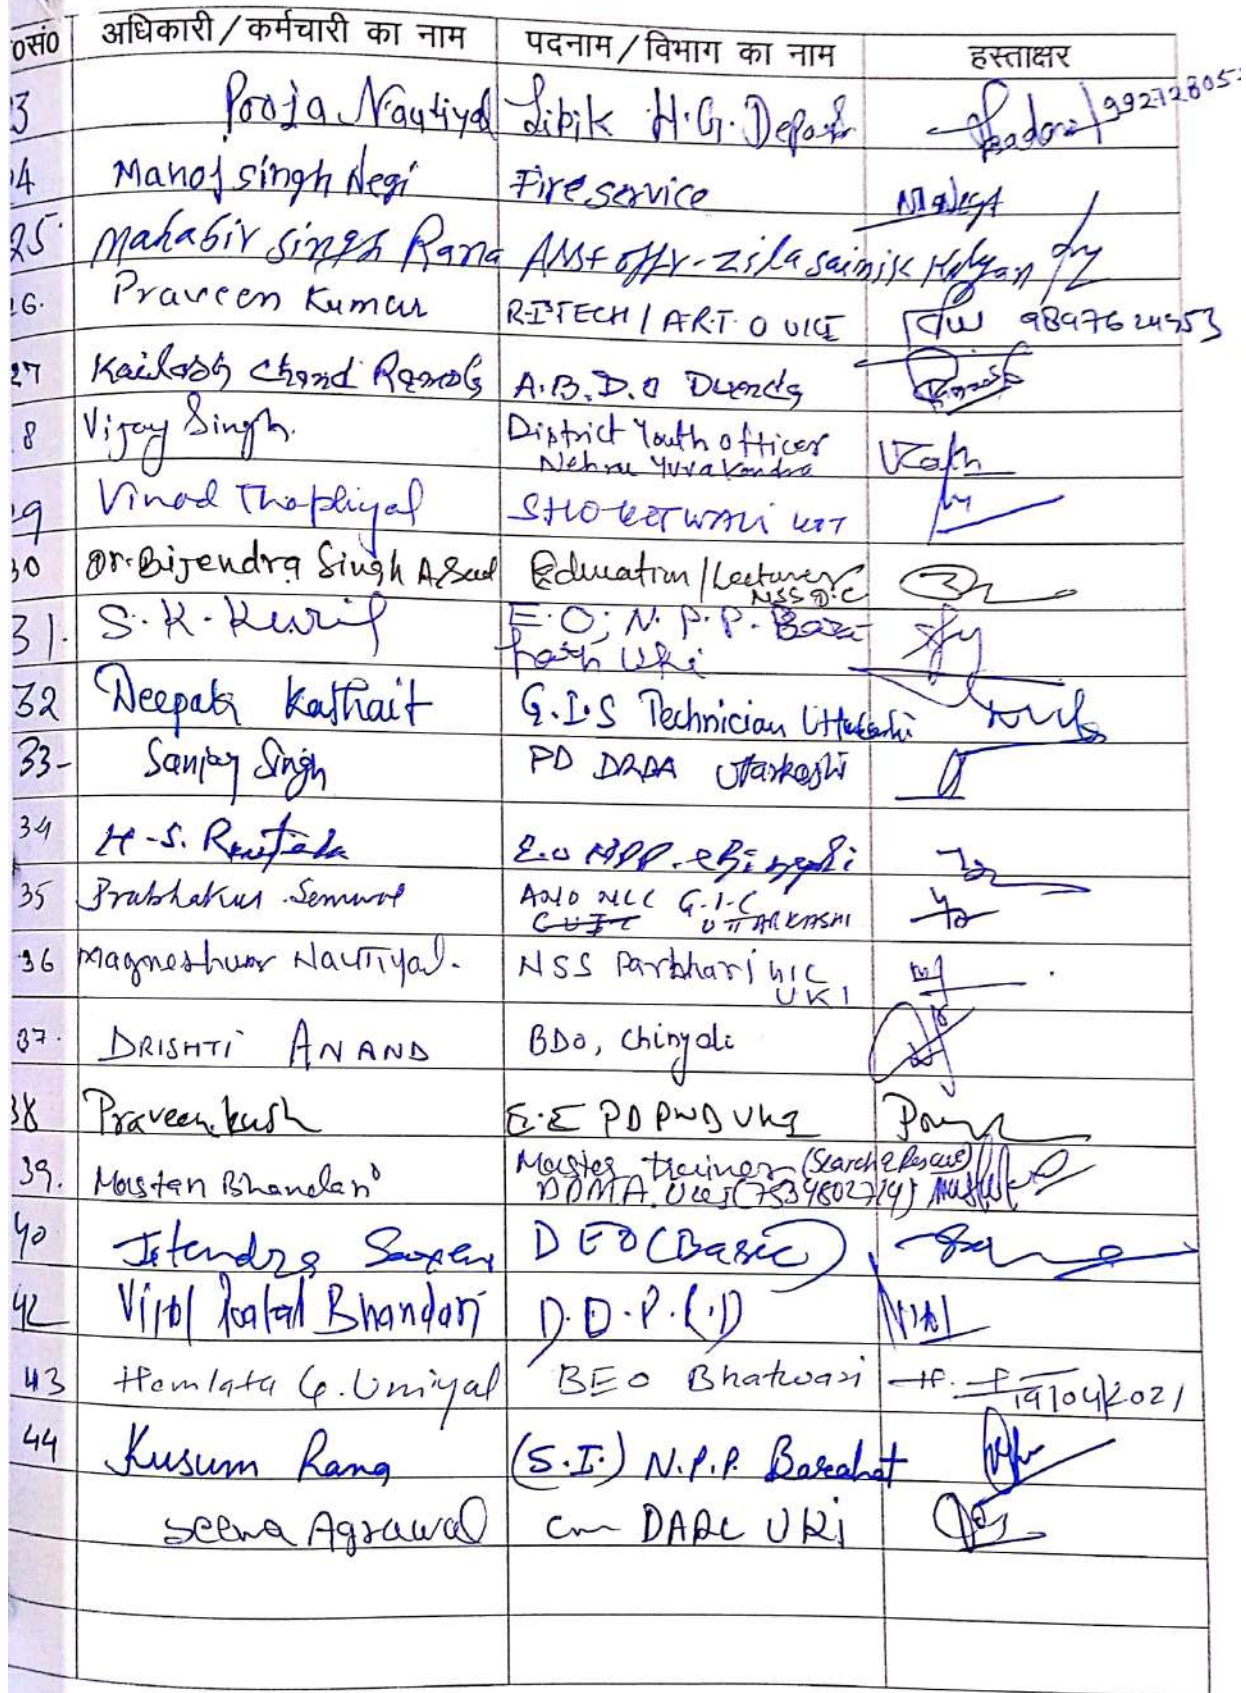 ०सं० अधिकारी / कर्मचारी का नाम पदनाम / विभाग का नाम हस्ताक्षर
3 Pooja Nautiyal Lipik H.G. Depart
4 Manoj singh Negi Fire service M Negi
25. Mahabir singh Rana Asst offr - zila sainik Kalyan
26. Praveen Kumar R.I. TECH / A.R.T.O UKI 9897624353
27 Kailash Chand Ramola A.B.D.O Dunda
8 Vijay Singh. District Youth officer
Nehru Yuva Kendra
29 Vinod Thapliyal SHO KOTWALI UKT
30 Dr. Bijendra Singh Education / Lecturer
NSS D.C
31. S.K. Kuril E.O; N.P.P. Bara
hath Uki
32 Deepak Kathait G.I.S Technician Uttarkashi
33- Sanjay Singh PD DRDA Uttarkashi
34 H-S. Rautela E.O NPP.
35 Prabhakar Semwal ANO NCC G.I.C
UTTARKASHI
36 Magneshwar Nautiyal. NSS Parbhari GIC
UKI
37. DRISHTI ANAND BDO, Chinyali
38 Praveen kush E.E PD PWD UKI
39. Mastan Bhandari Master trainer (Search & Rescue)
DDMA. Uki (7534802714)
40 Jitendra Saxena DEO (Basic)
42 Vijol Bhandari
43 Hemlata G. Uniyal BEO Bhatwari 19/04/2021
44 Kusum Rana (S.I.) N.P.P. Barahat
Seema Agrawal UKi